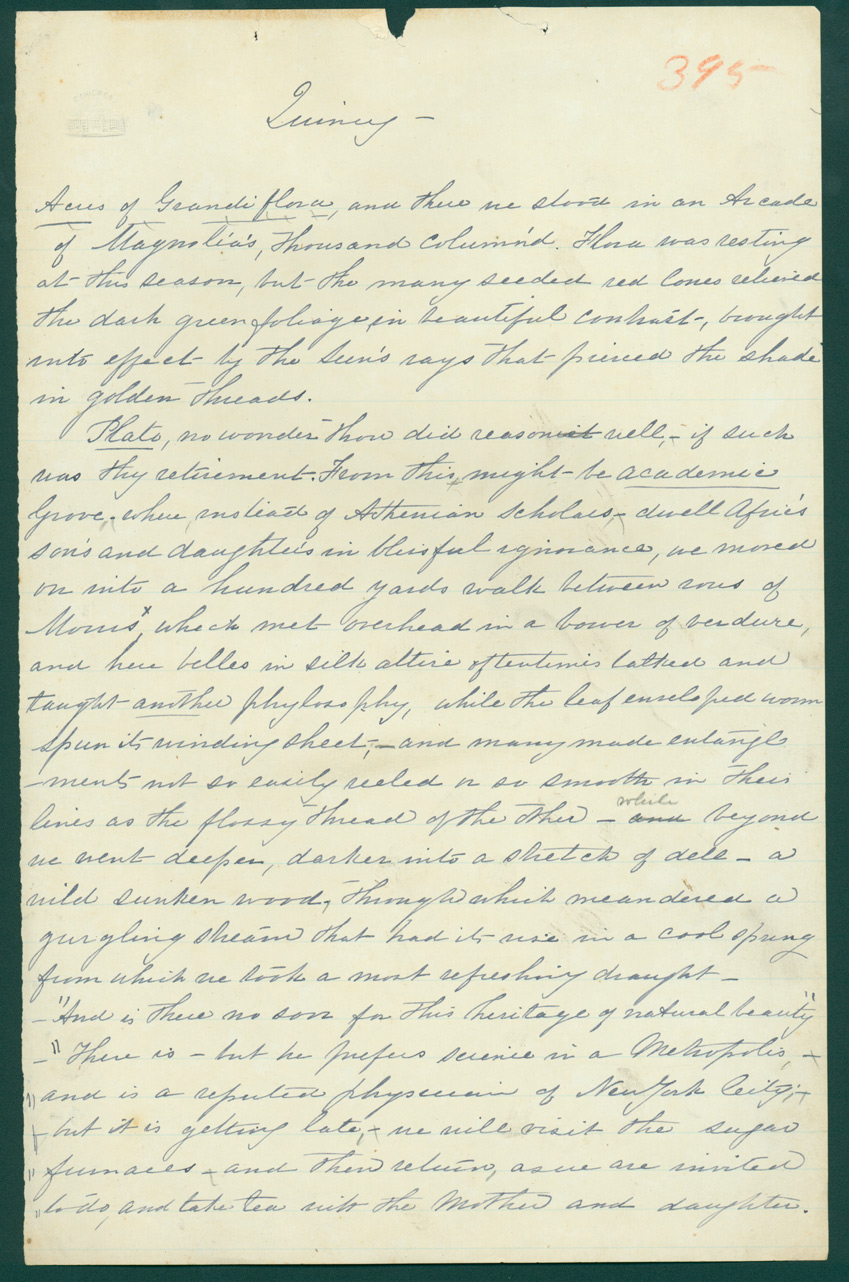 CONGRESS
395
Quincy –
Acres of Grandiflora, and there we stood in an Arcade
of Magnolia's, thousand column'd. Flora was resting
at this season, but the many seeded red Cones relieved
the dark green foliage, in beautiful contrast, brought
into effect by the Sun's rays that pierced the shade
in golden threads.
Plato, no wonder thou did reason well, – if such
was thy retirement. From this, might be academic
Grove, where instead of Athenian Scholars – dwell Afric's
son's and daughter's in blissful ignorance, we moved
on into a hundred yards walk between rows of
Morus x, which met overhead in a bower of verdure,
and here belles in silk attire oftentimes talked and
taught another phylosophy, while the leaf enveloped worm
spun its winding sheet, – and many made entangle
-ments not so easily reeled or so smooth in their
lines as the flossy thread of the other – and while beyond
we went deeper, darker into a stretch of dell – a
wild sunken wood, through which meandered a
gurgling stream that had its rise in a cool spring
from which we took a most refreshing draught –
– "And is there no son for this heritage of natural beauty"
– "There is – but he prefers science in a Metropolis, –
" and is a reputed physician of New York City; –
– but it is getting late, – we will visit the sugar
" furnaces – and then return, as we are invited
" to do, and take tea with the Mother and daughter.